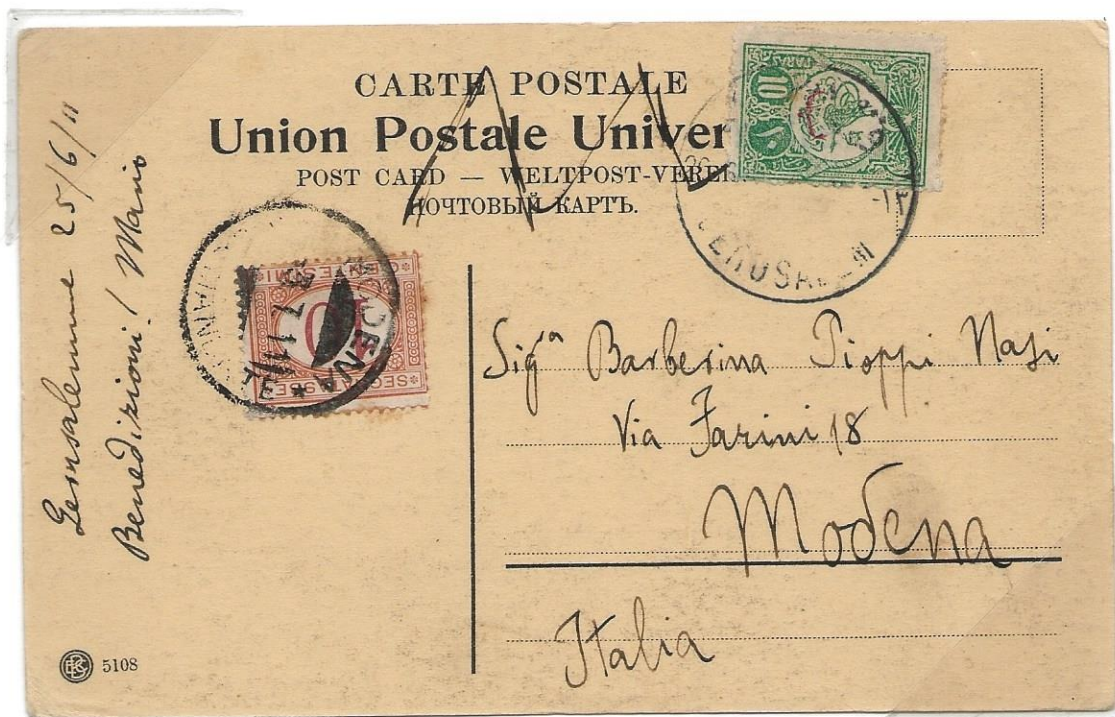 CARTE POSTALE
Union Postale Univer
POST CARD — WELTPOST-VEREI
ПОЧТОВЫЙ КАРТЪ.
10
PARAS
JERUSALEM
MODENA
7 11
10
SEGNATASSE
CENTESIMI
Gerusalemme 25/6/11
Benedizioni! Mario
Sigᵃ Barberina Pioppi Nasi
Via Farini 18
Modena
Italia
5108